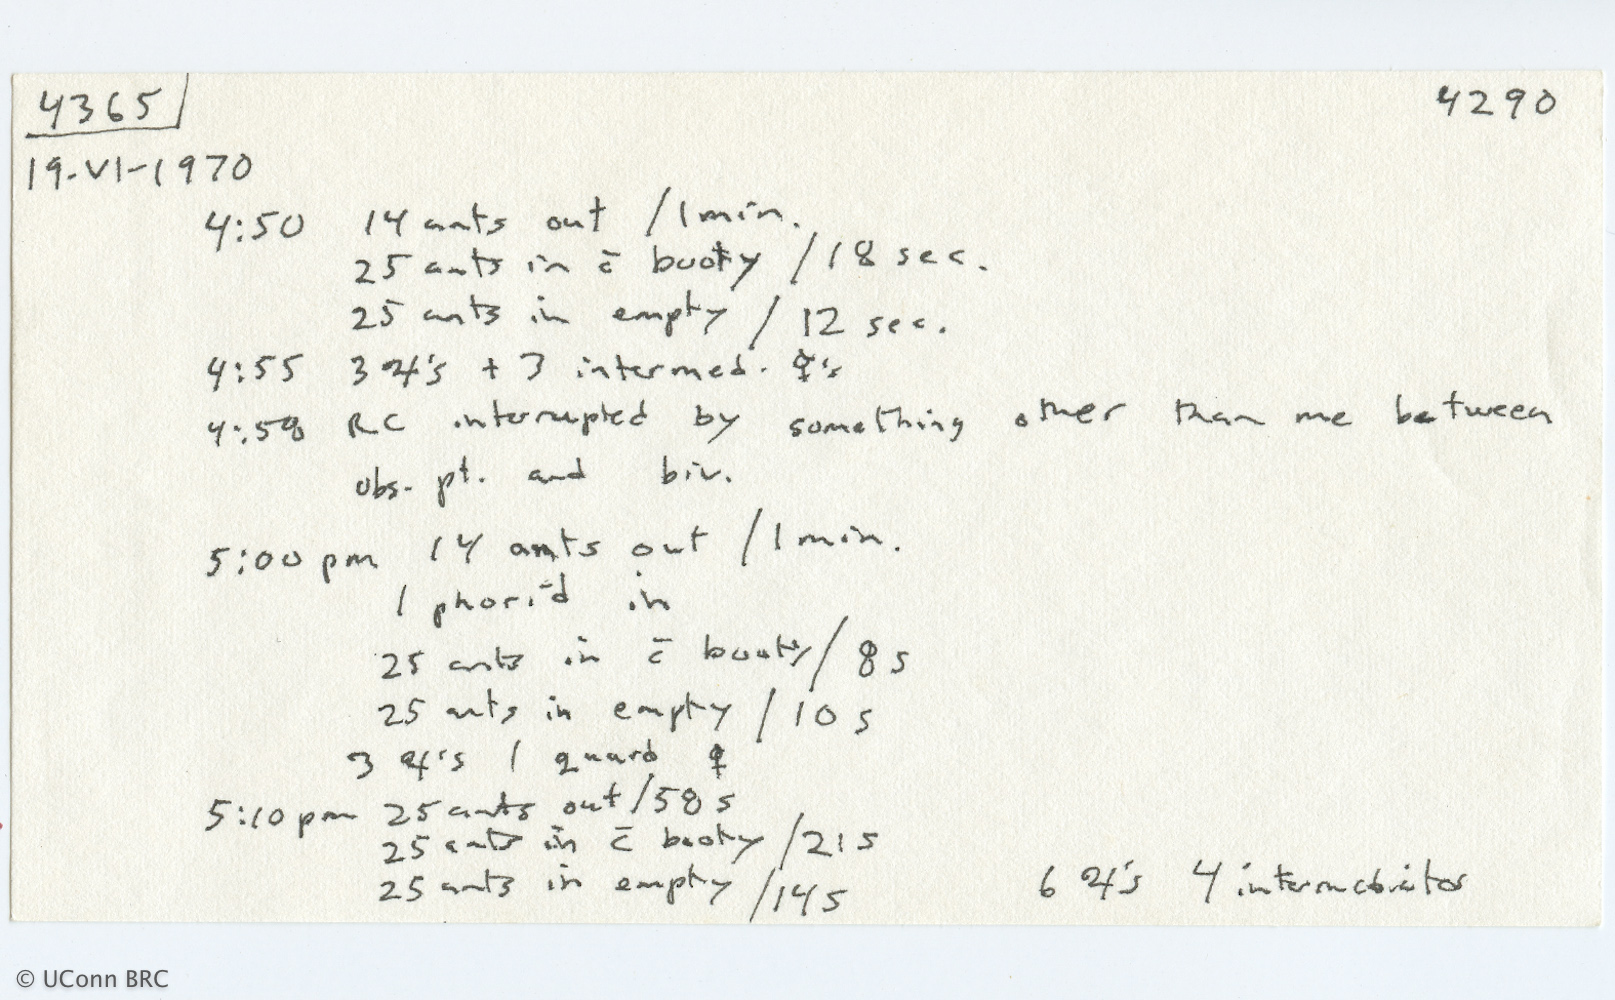 4365
4290
19-VI-1970
4:50 14 ants out /1min.
25 ants in c̄ booty /18 sec.
25 ants in empty / 12 sec.
4:55 3 ♃'s + 3 intermed. ☿'s
4:58 RC interrupted by something other than me between
obs. pt. and biv.
5:00 pm 14 ants out /1min.
1 phorid in
25 ants in c̄ booty/ 8s
25 ants in empty / 10 s
3 ♃'s 1 guard ☿
5:10 pm 25 ants out/58 s
25 ants in c̄ booty /21s
25 ants in empty /14s
6 ♃'s 4 intermediates
© UConn BRC